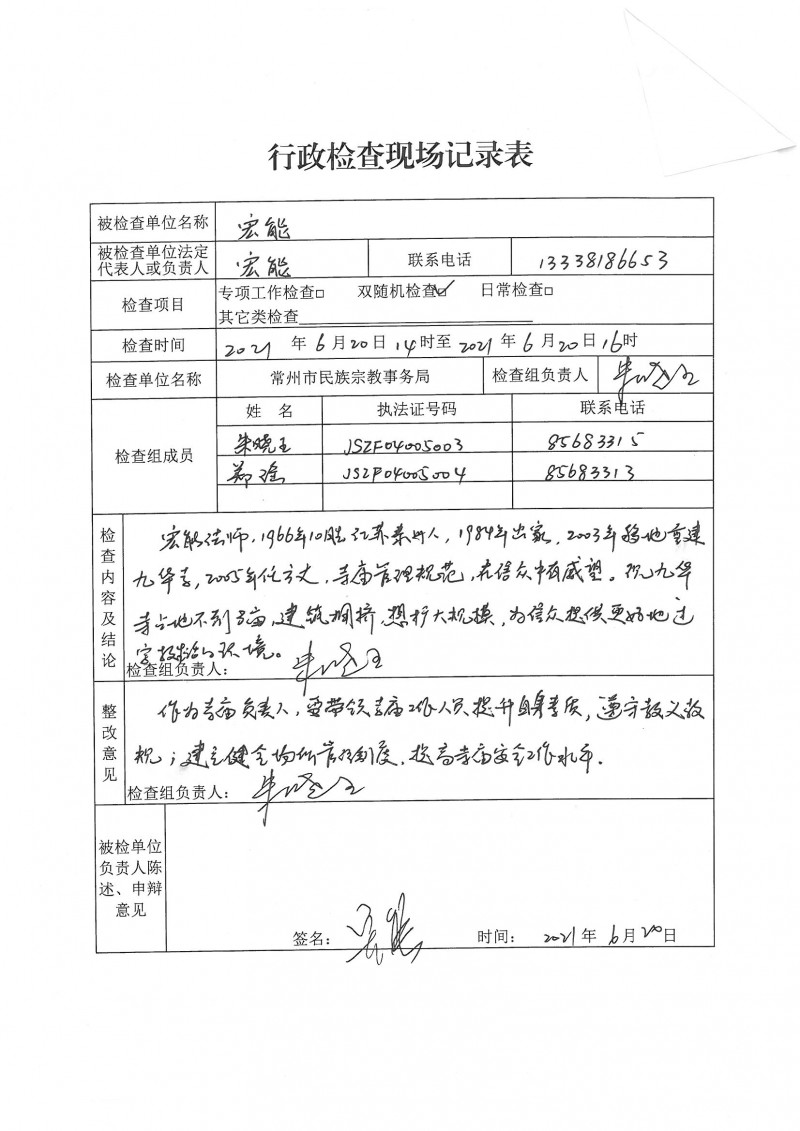 行政检查现场记录表
被检查单位名称 宏能
被检查单位法定代表人或负责人 宏能 联系电话 13338186653
检查项目 专项工作检查□ 双随机检查☑ 日常检查□
其它类检查
检查时间 2021 年 6 月 20 日 14 时至 2021 年 6 月 20 日 16 时
检查单位名称 常州市民族宗教事务局 检查组负责人 朱晓玉
检查组成员 姓 名 执法证号码 联系电话
朱晓玉 JSZF04005003 85683315
郑瑶 JSZF04005004 85683313
检查内容及结论
宏能法师,1966年10月生 江苏泰州人,1984年出家,2003年移地重建
九华寺,2005年任方丈,寺庙管理规范,在信众中有威望。现九华
寺占地不到3亩,建筑拥挤,想扩大规模,为信众提供更好地过
宗教生活的环境。
检查组负责人: 朱晓玉
整改意见
作为寺庙负责人,要带领寺庙工作人员提升自身素质,遵守教义教
规;建立健全场所管理制度,提高寺庙安全工作水平.
检查组负责人: 朱晓玉
被检单位负责人陈述、申辩意见
签名: 宏能 时间: 2021 年 6 月 20 日